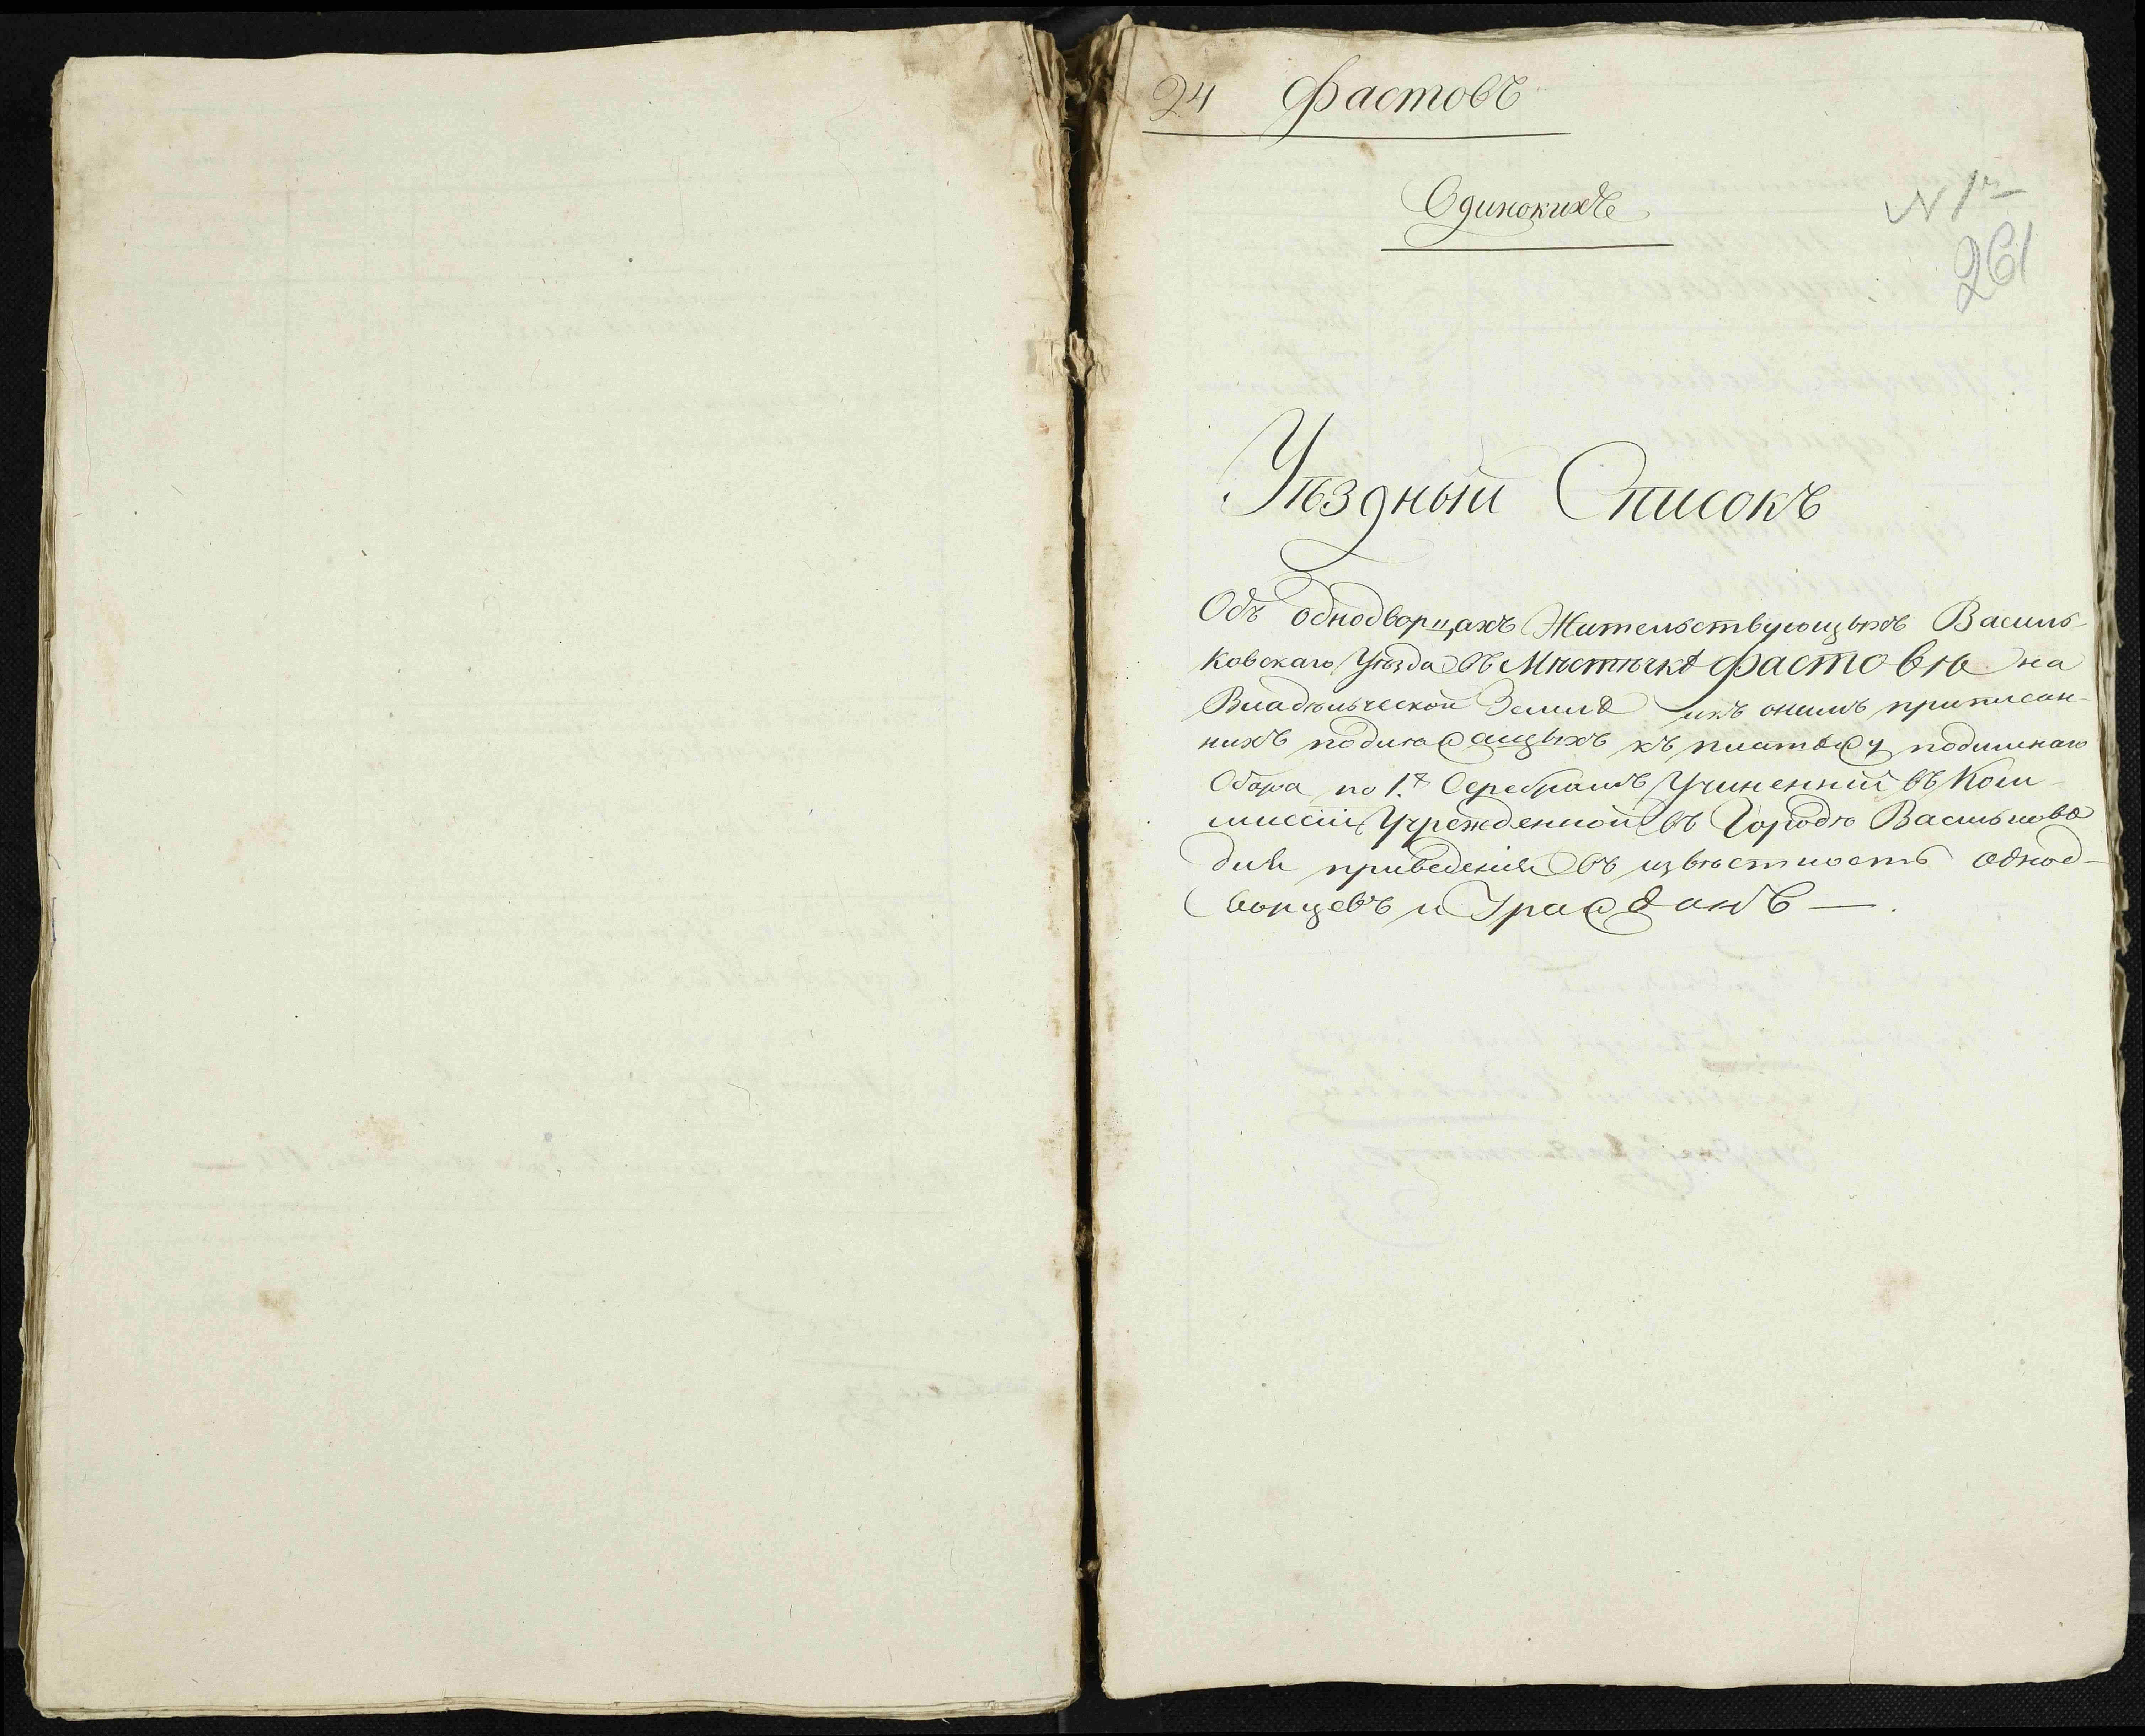 24 Фастовъ
Одинокихъ
N 1й
261
Уѣздный Списокъ
Объ однодворцахъ Жительствующыхъ Василь-
ковскаго Уѣзда въ Мѣстѣчкѣ Фастовѣ на
Владѣльческой Землѣ и къ онымъ приписан-
нихъ подлежащыхъ къ платежу подымнаго
Сбора по 1. Серебромъ Учиненній въ Ком-
миссіи Учрежденной въ Городѣ Васильковѣ
для приведенія въ извѣстность однод-
ворцевъ и Гражданъ —.